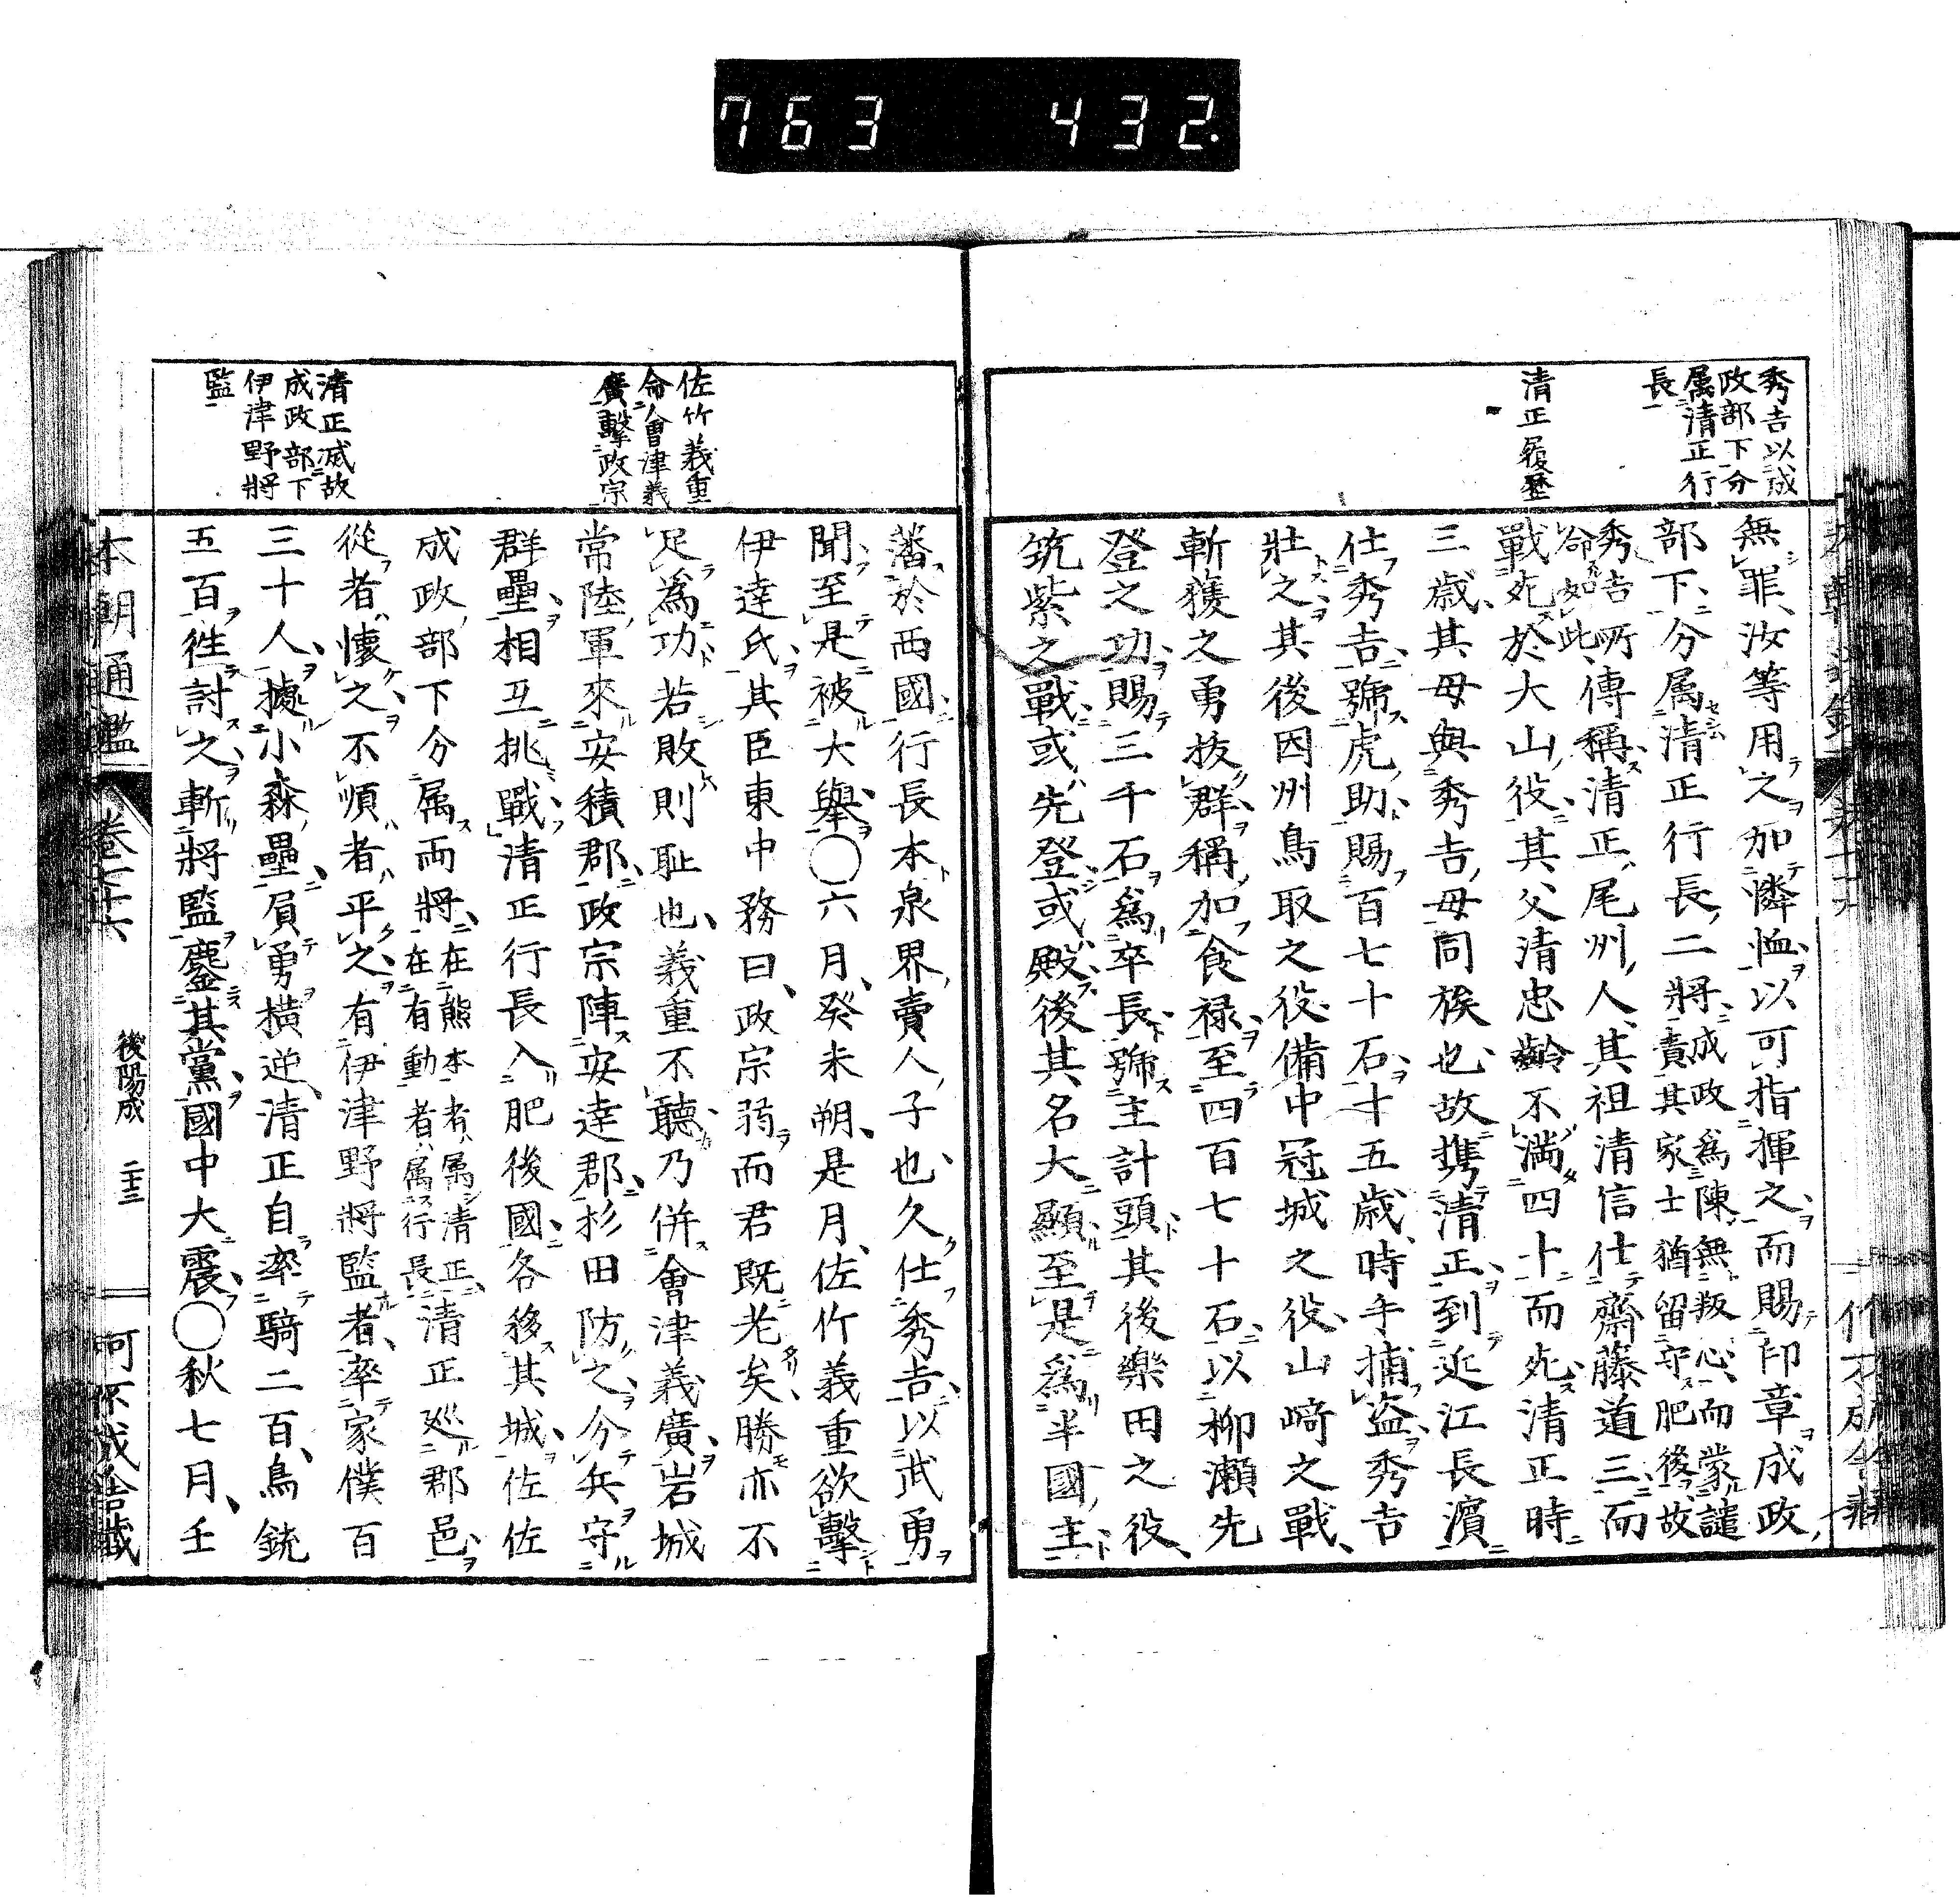 763 432.
秀吉以成
政部下分
属清正行
長
清正履歴
無罪、汝等用之加憐恤以可指揮之而賜印章成政
部下分属清正行長二將成政爲陳無叛心而蒙譴
責其家士猶留守肥後故
秀吉所
命如此傳稱清正尾州人其祖清信仕齋藤道三而
戰死於大山役其父清忠齡不満四十而死清正時
三歳其母與秀吉母同族也故携清正到近江長濵
仕秀吉號虎助賜百七十石十五歳時手捕盗秀吉
壯之其後因州鳥取之役備中冠城之役山﨑之戰
斬獲之勇抜群稱加食禄至四百七十石以柳瀬先
登之功賜三千石爲卒長號主計頭其後樂田之役
筑紫之戰或先登或殿後其名大顯至是爲半國主
佐竹義重
命會津義
廣擊政宗
清正滅故
成政部下
伊津野將
監
藩於西國行長本泉界賣人子也久仕秀吉以武勇
聞至是被大舉〇六月癸未朔是月佐竹義重欲擊
伊達氏其臣東中務曰政宗弱而君既老矣勝亦不
足爲功若敗則耻也義重不聽乃併會津義廣岩城
常陸軍來安積郡政宗陣安達郡杉田防之分兵守
群壘相互挑戰清正行長入肥後國各移其城佐佐
成政部下分属両將在熊本者属清正
在有動者属行長清正廵郡邑
從者懷之不順者平之有伊津野將監者率家僕百
三十人據小森壘負勇横逆清正自率騎二百鳥銃
五百徃討之斬將監鏖其黨國中大震〇秋七月壬
本朝通鑑 卷 後陽成 二十三